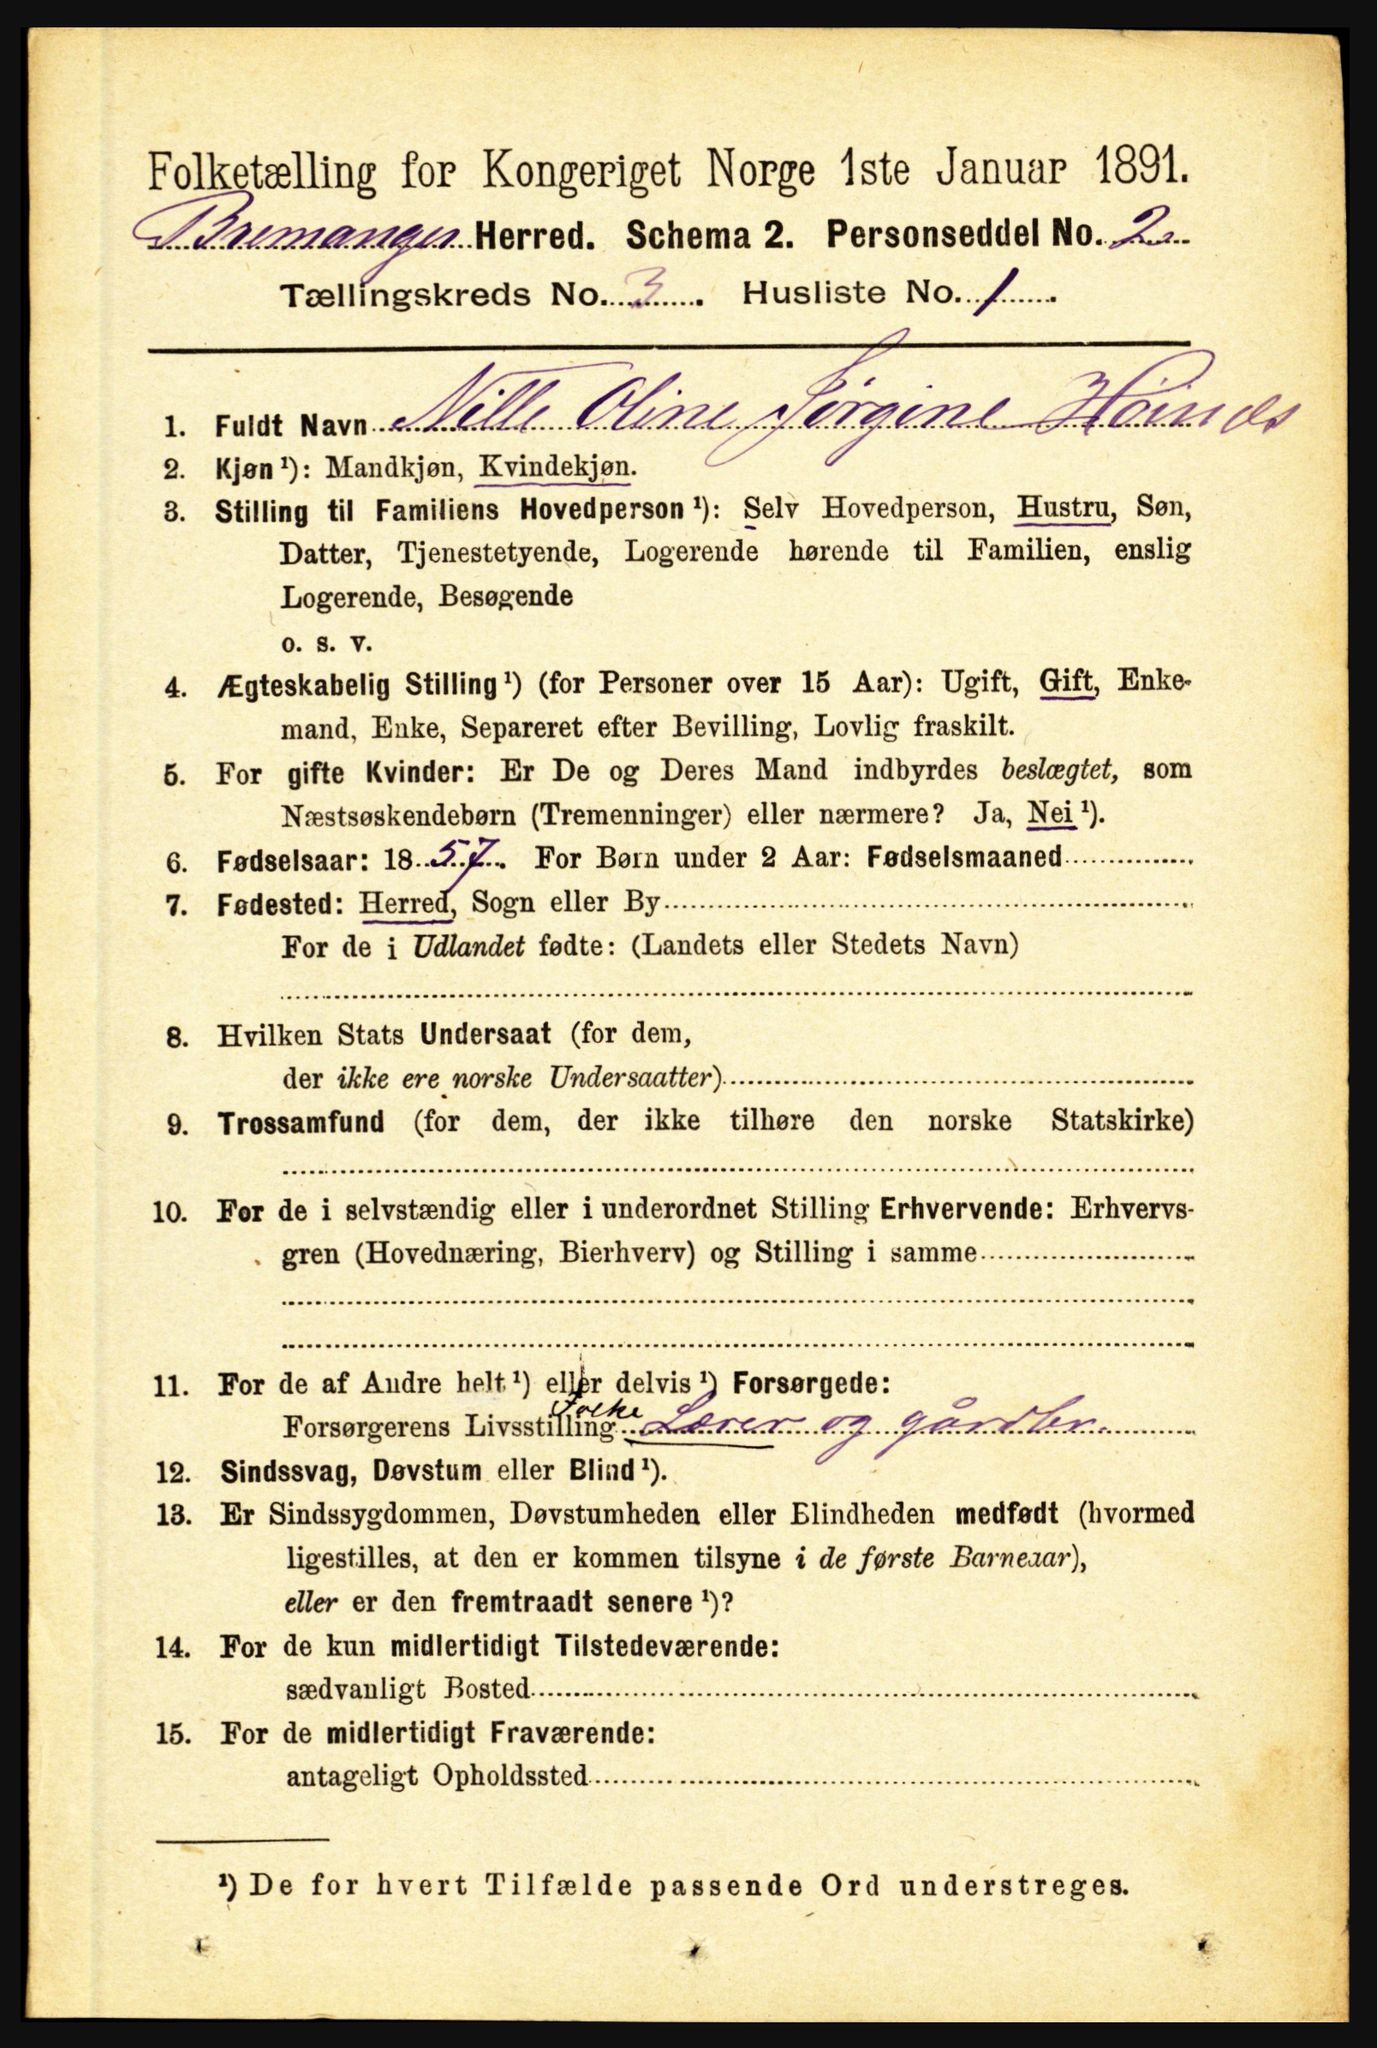 Folketælling for Kongeriget Norge 1ste Januar 1891.
Bremanger Herred. Schema 2. Personseddel No. 2
Tællingskreds No. 3. Husliste No. 1.
1. Fuldt Navn Nille Oline Jørgine
2. Kjøn ¹): Mandkjøn, Kvindekjøn.
3. Stilling til Familiens Hovedperson ¹): Selv Hovedperson, Hustru, Søn,
Datter, Tjenestetyende, Logerende hørende til Familien, enslig
Logerende, Besøgende
o. s. v.
4. Ægteskabelig Stilling ¹) (for Personer over 15 Aar): Ugift, Gift, Enke-
mand, Enke, Separeret efter Bevilling, Lovlig fraskilt.
5. For gifte Kvinder: Er De og Deres Mand indbyrdes beslægtet, som
Næstsøskendebørn (Tremenninger) eller nærmere? Ja, Nei ¹).
6. Fødselsaar: 1857. For Børn under 2 Aar: Fødselsmaaned
7. Fødested: Herred, Sogn eller By
For de i Udlandet fødte: (Landets eller Stedets Navn)
8. Hvilken Stats Undersaat (for dem,
der ikke ere norske Undersaatter)
9. Trossamfund (for dem, der ikke tilhøre den norske Statskirke)
10. For de i selvstændig eller i underordnet Stilling Erhvervende: Erhvervs-
gren (Hovednæring, Bierhverv) og Stilling i samme
11. For de af Andre helt ¹) eller delvis ¹) Forsørgede:
Forsørgerens Livsstilling Folke Lærer og gårdbr.
12. Sindssvag, Døvstum eller Blind ¹).
13. Er Sindssygdommen, Døvstumheden eller Blindheden medfødt (hvormed
ligestilles, at den er kommen tilsyne i de første Barneaar),
eller er den fremtraadt senere ¹)?
14. For de kun midlertidigt Tilstedeværende:
sædvanligt Bosted
15. For de midlertidigt Fraværende:
antageligt Opholdssted
¹) De for hvert Tilfælde passende Ord understreges.